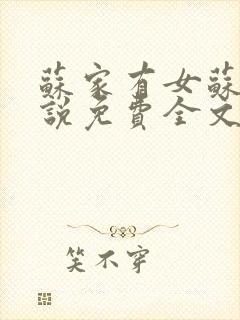 蘇家有女蘇
說免費全文
笑不穿